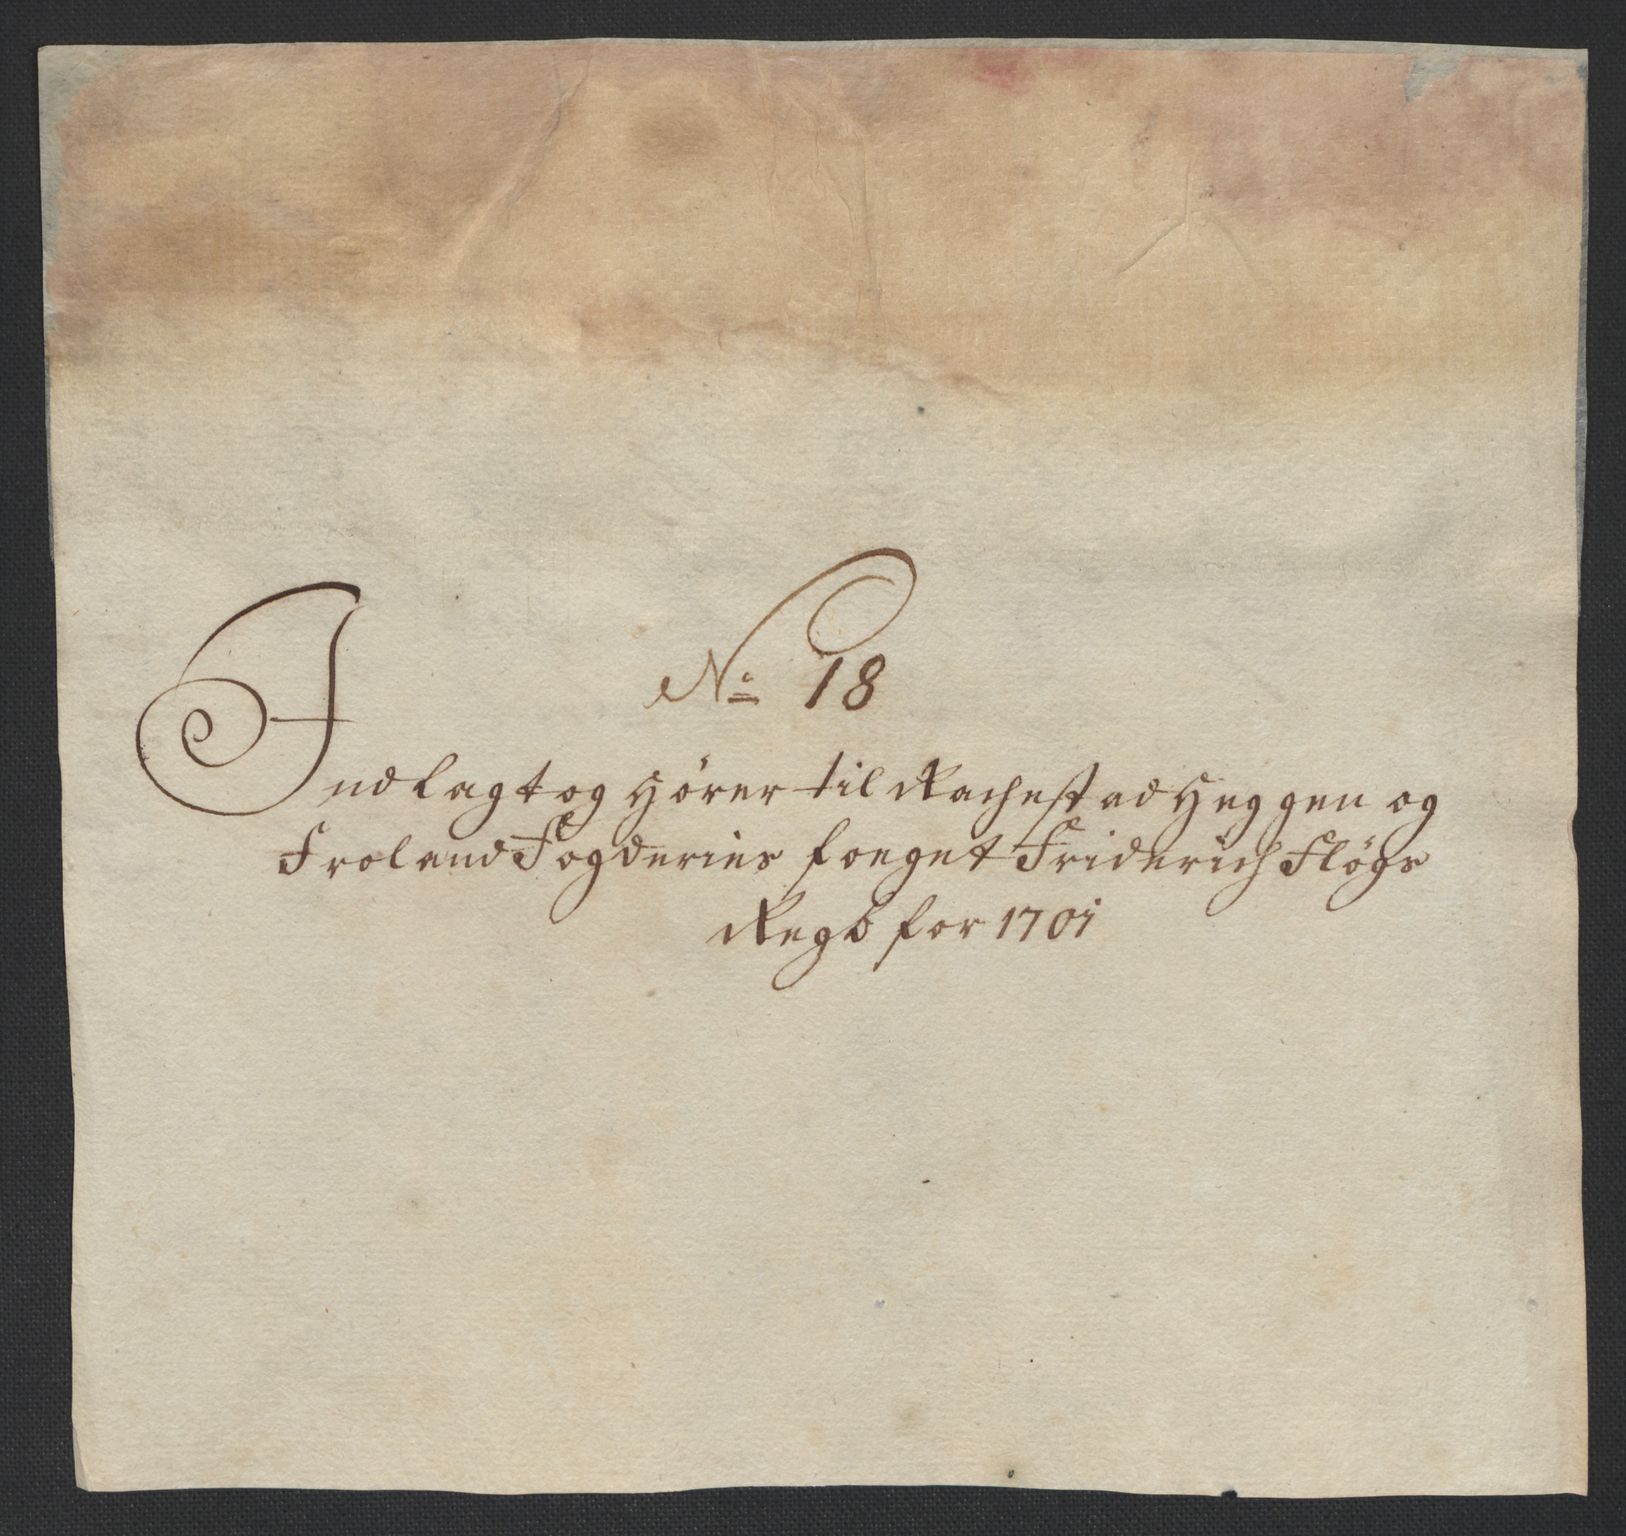 No 18
Indlagt og Hörer til Rachestad Heggen og
Froland Fogderies foeget Friderich Fløgs
Regb for 1701